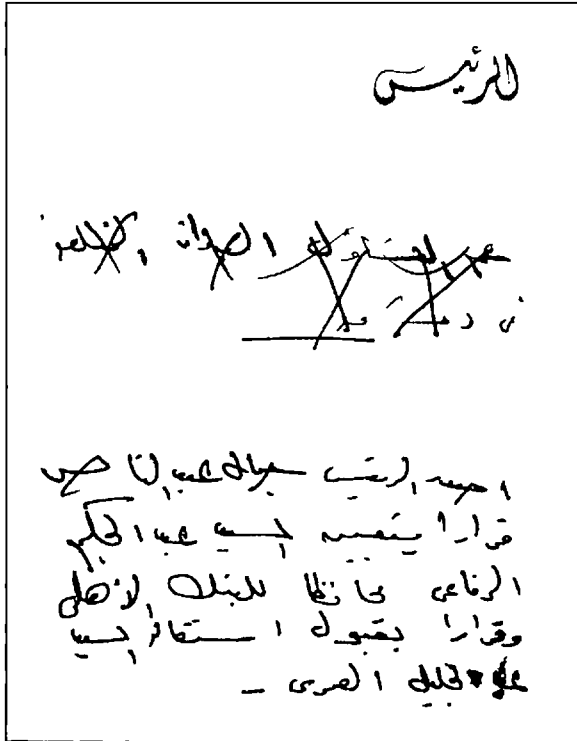 الرئيس
اصدر الرئيس جمال عبد الناصر
قرارا بتعيين السيد عبد الحكيم
الرفاعى محافظا للبنك الأهلى
وقرارا بقبول استقالة السيد
عبد الجليل العمرى -